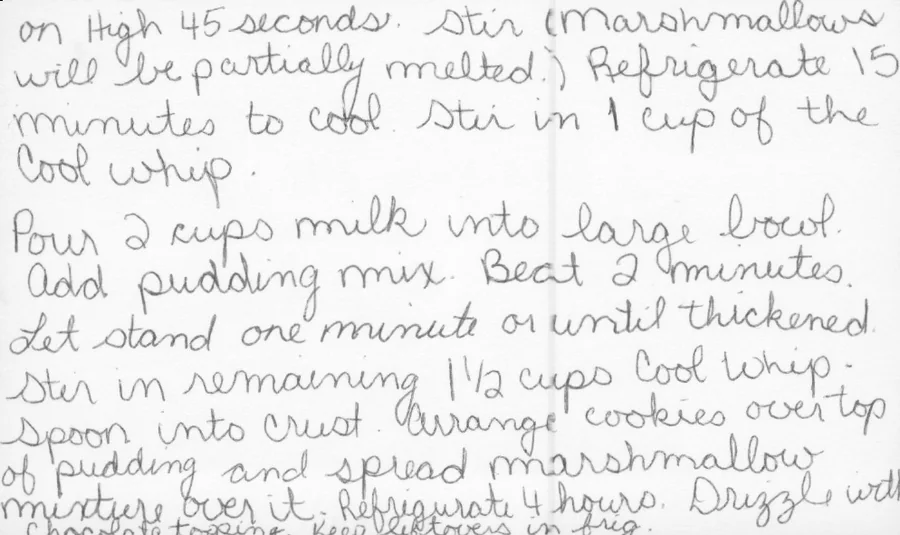 on High 45 seconds. Stir (Marshmallows
will be partially melted.) Refrigerate 15
minutes to cool. Stir in 1 cup of the
Cool whip.
Pour 2 cups milk into large bowl.
Add pudding mix. Beat 2 minutes.
Let stand one minute or until thickened.
Stir in remaining 1 1/2 cups Cool Whip.
Spoon into crust. Arrange cookies over top
of pudding and spread marshmallow
mixture over it. Refrigurate 4 hours. Drizzle with
Chocolate topping. Keep leftovers in frig.